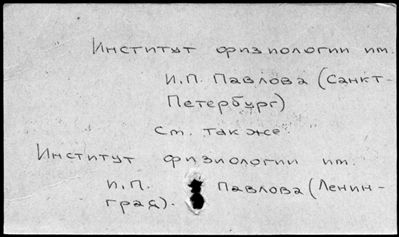 Институт физиологии им.
И.П. Павлова (Санкт-
Петербург)
См. также
Институт физиологии им.
И.П. Павлова (Ленин-
град).